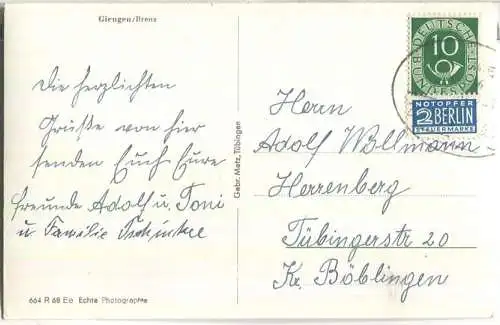 Giengen/Brenz
Die herzlichten
Grüße von hier
senden Euch Eure
freunde Adolf u. Toni
u Familie
664 R 68 Eo Echte Photographie
Gebr. Metz, Tübingen
DEUTSCHE
BUNDESPOST
10
NOTOPFER
2 BERLIN
STEUERMARKE
Herrn
Adolf Wollmann
Herrenberg
Tübingerstr 20
Kr. Böblingen